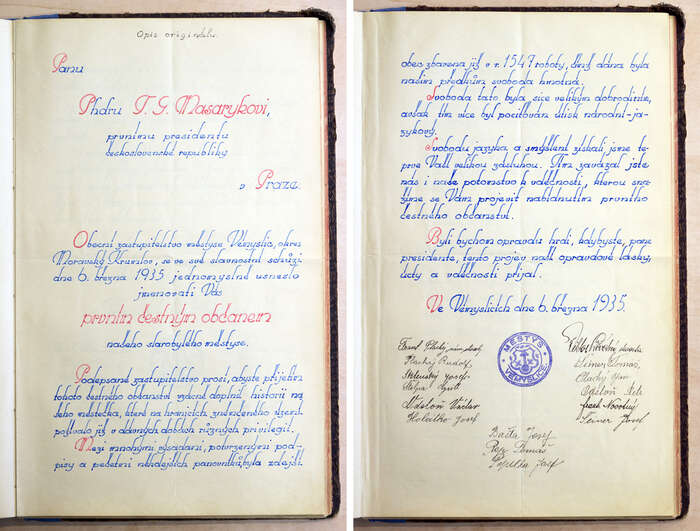 Opis originálu.
Panu
Phdru T. G. Masarykovi,
prvnímu presidentu
československé republiky
v Praze.
Obecní zastupitelstvo městyse Vémyslic, okres
Moravský Krumlov, se ve své slavnostní schůzi
dne 6. března 1935 jednomyslně usneslo
jmenovati Vás
prvním čestným občanem
našeho starobylého městyse.
Podepsané zastupitelstvo prosí, abyste přijetím
tohoto čestného občanství vzdeně doplnil historii na-
šeho městečka, které na hranicích zněmčeného území
požívalo již v dávných dobách různých privilegií.
Mezi mnohými výsadami, potvrzenými pod-
pisy a pečetěmi někdejších panovníků, byla zdejší
obec zbavena již v r. 1547 roboty, čímž dána byla
našim předkům svoboda hmotná.
Svoboda tato byla sice velikým dobrodiním,
avšak tím více byl pociťován útisk národní-ja-
zykový.
Svobodu jazyka a smýšlení získali jsme te-
prve Vaší velikou zásluhou. Tím zavázal jste
nás i naše potomstvo k vděčnosti, kterou sna-
žíme se Vám projevit nabídnutím prvního
čestného občanství.
Byli bychom opravdu hrdi, kdybyste, pane
presidente, tento projev naší opravdové lásky,
úcty a vděčnosti přijal.
Ve Vémyslicích dne 6. března 1935.
MĚSTYS
VÉMYSLICE
Plachý Rudolf,
Josef
Václav
Josef
Tomáš,
Novotný
Josef
Bašta Josef
Tomáš
Popelka Josef